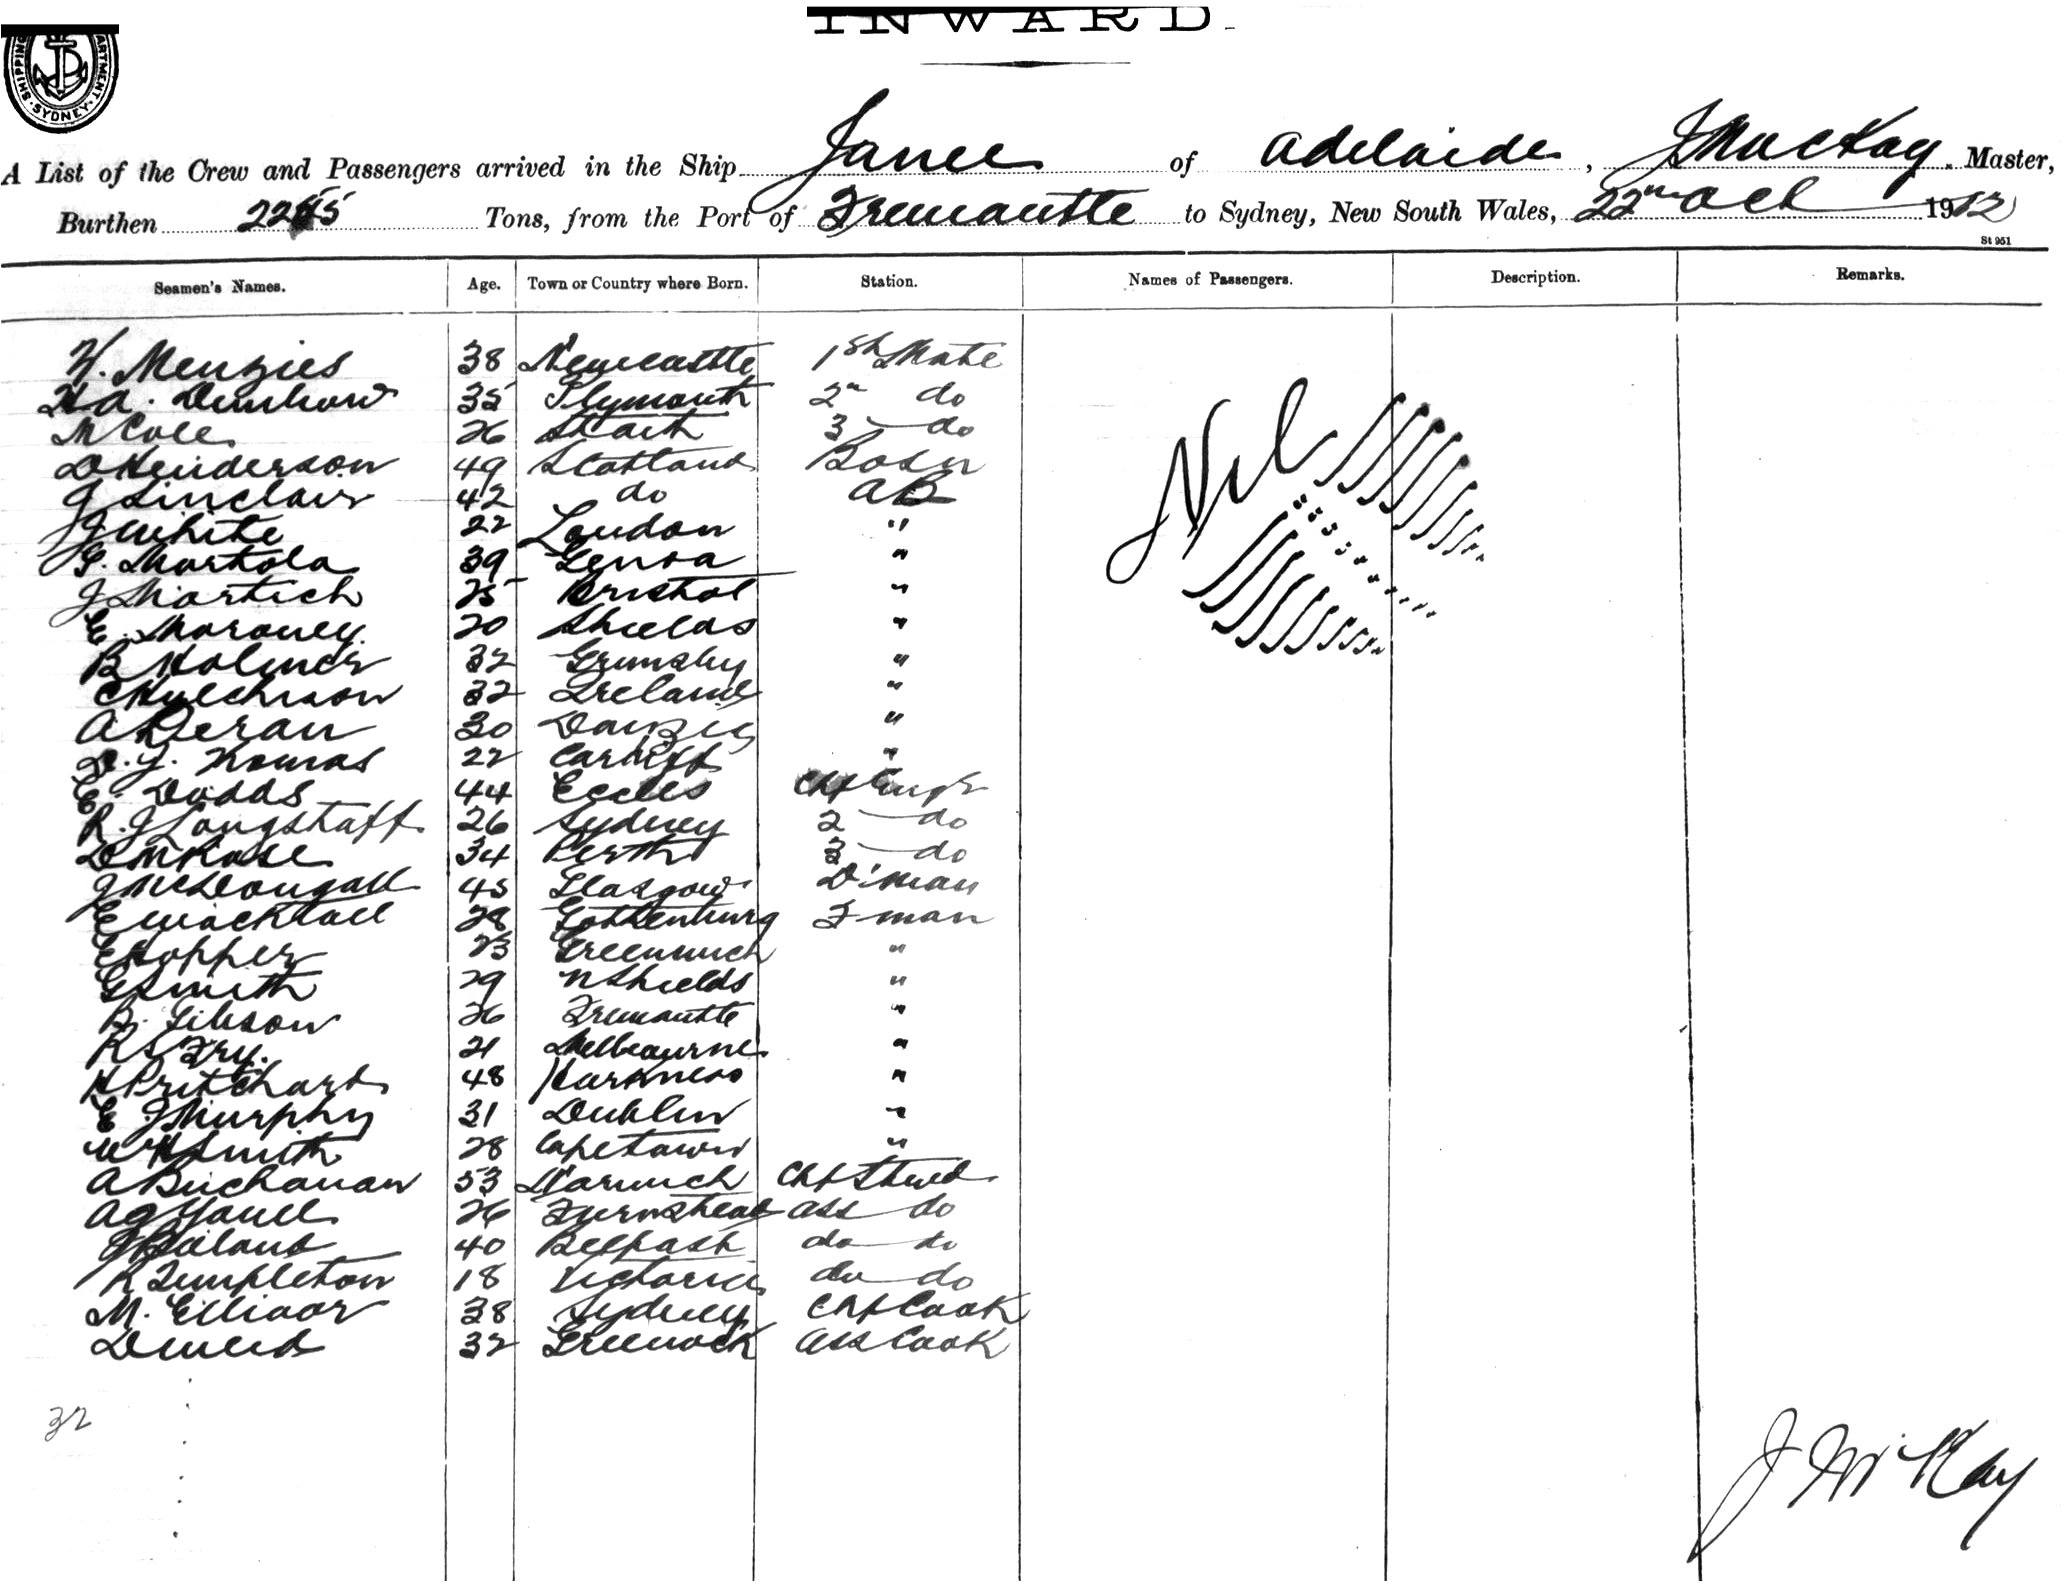 INWARD.
SHIPPING DEPARTMENT. SYDNEY.
A List of the Crew and Passengers arrived in the Ship of Adelaide, J MacKay. Master,
Burthen Tons, from the Port of Fremantle to Sydney, New South Wales, 22nd Oct 1912
St 951
Seamen's Names. Age. Town or Country where Born. Station. Names of Passengers. Description. Remarks.
H. Menzies 38 Newcastle 1st Mate
H A. 35 Plymouth 2n do
M Cole 26 3 do
D Henderson 49 Scotland Bosn
J Sinclair 42 do AB
J White 22 London "
G. Martola 39 Genoa "
J Martich 25 Bristol "
E. Moroney. 20 Shields "
B Holmes 32 Grimsby "
C Hutchison 32 Ireland "
A Deran 30 Danzig "
D. J. Thomas 22 Cardiff "
E. Dodds 44 Eccles Chf Engr
R. J Longstaff 26 Sydney 2 do
D M Rose 34 Perth 3 do
J McDougall 45 Glasgow D'man
E 28 Gothenburg F man
E Hopper 23 Greenwich "
G Smith 29 N Shields "
B. Gibson 26 Fremantle "
R S Fry. 21 Melbourne "
H Pritchard 48 "
E J Murphy 31 Dublin "
W H Smith 28 Capetown "
A Buchanan 53 Chf Stewd
A G 26 Ass do
J Boland 40 Belfast do do
R Templeton 18 Victoria do do
M. Ellioor 38 Sydney Chf Cook
D Weed 32 Greenock Ass Cook
Nil
32
J McKay